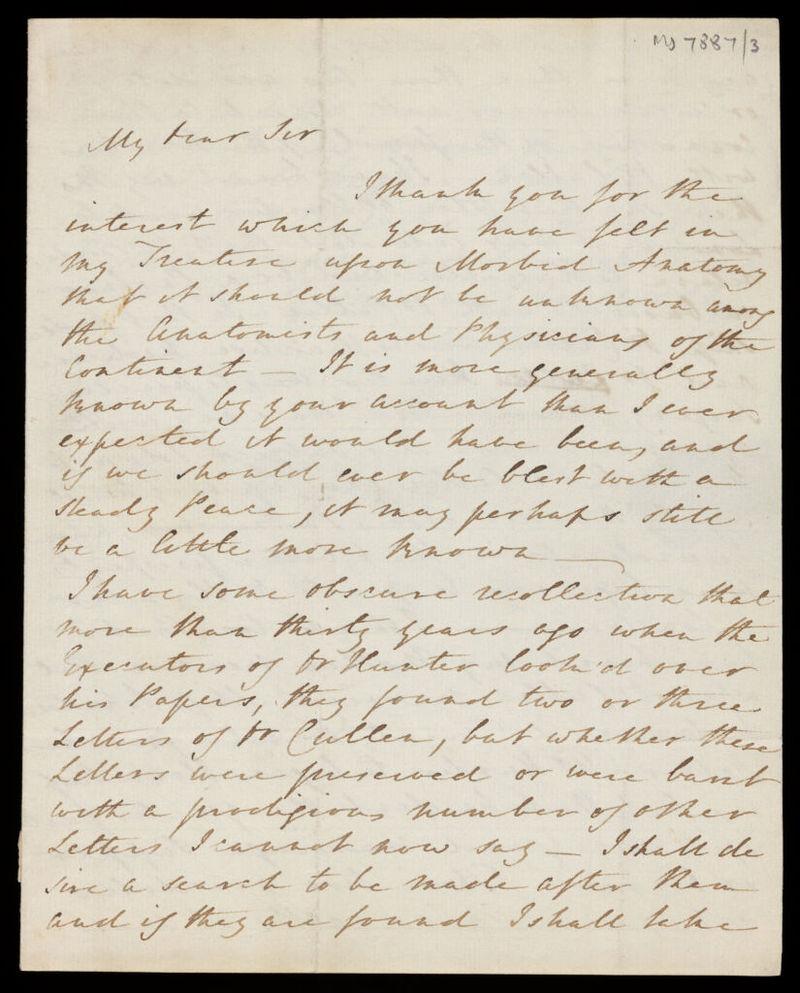 MS 7887/3
My dear Sir
I thank you for the
interest which you have felt in
my Treatise upon Morbid Anatomy
that it should not be unknown among
the Anatomists and Physicians of the
Continent — It is more generally
known by your account than I ever
expected it would have been, and
if we should ever be blest with a
steady Peace, it may perhaps still
be a little more known —
I have some obscure recollection that
more than thirty years ago when the
Executors of Dr Hunter look'd over
his Papers, they found two or three
Letters of Dr Cullen, but whether these
Letters were preserved or were burnt
with a prodigious number of other
Letters I cannot now say — I shall de
sire a search to be made after them
and if they are found I shall take